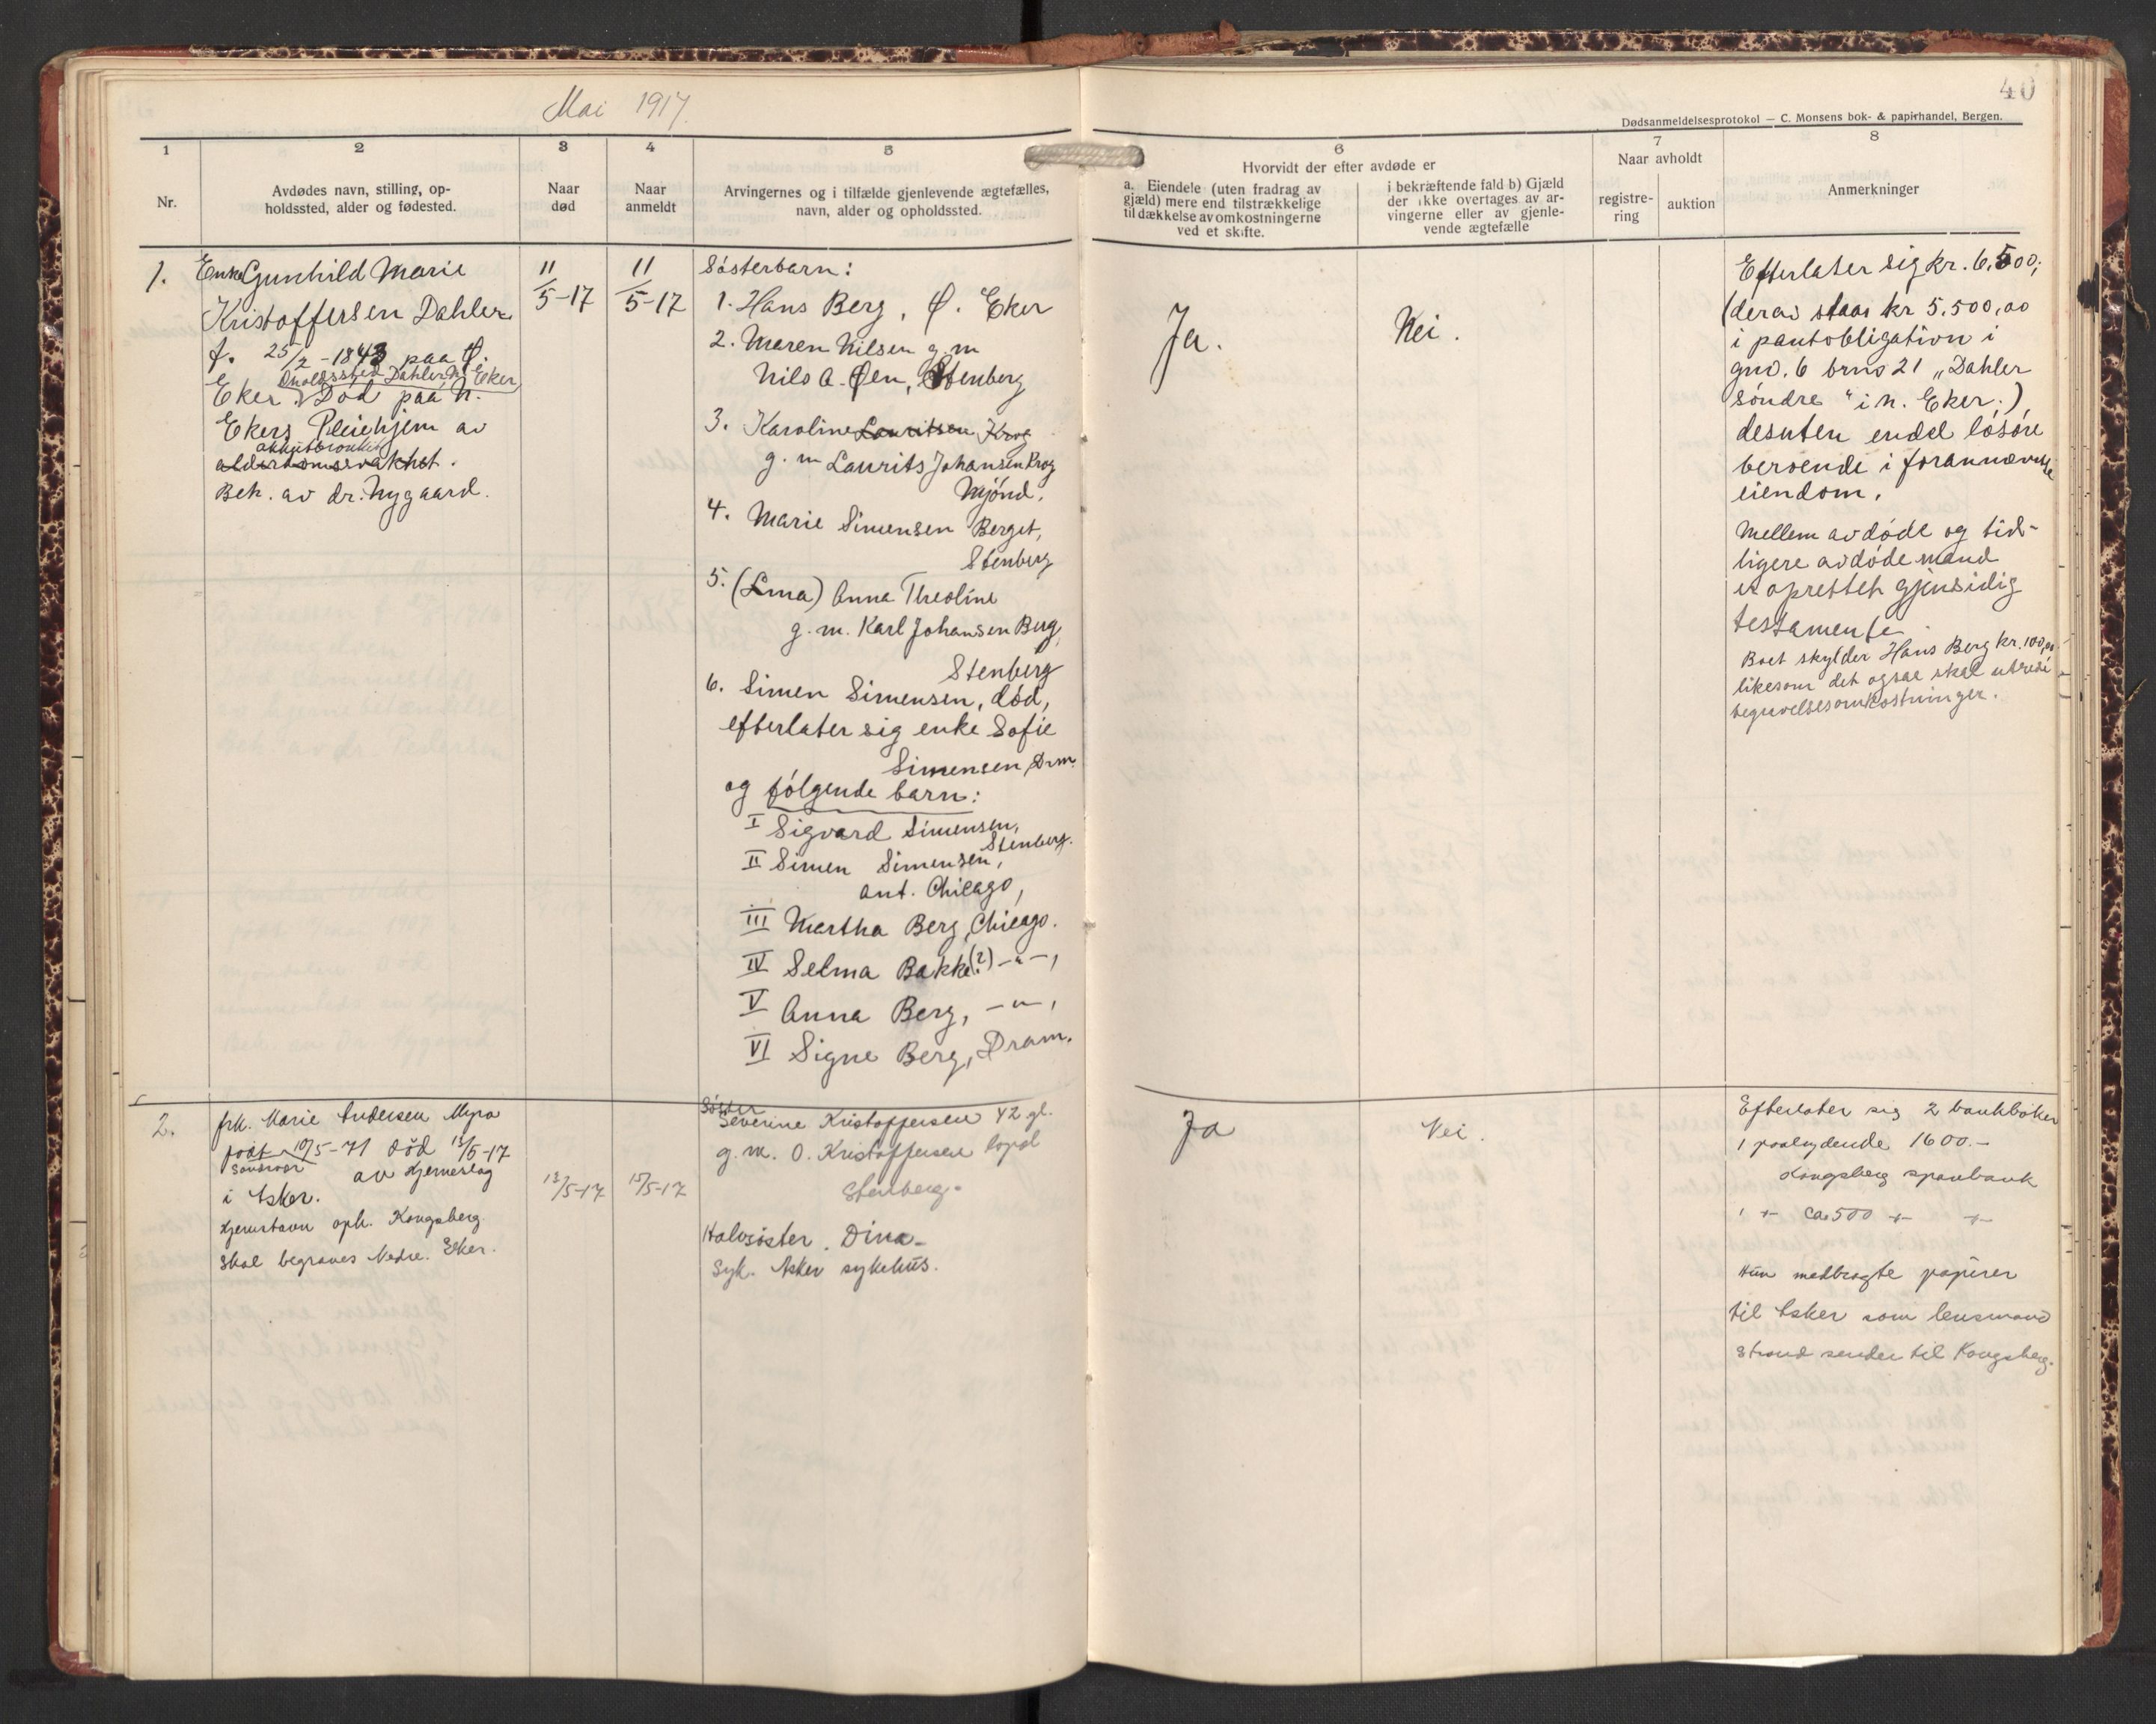 Mai 1917.
40
Dødsanmeldelsesprotokol — C. Monsens bok- & papirhandel, Bergen.
1
Nr.
2
Avdødes navn, stilling, op-
holdssted, alder og fødested.
3
Naar
død
4
Naar
anmeldt
5
Arvingernes og i tilfælde gjenlevende ægtefælles,
navn, alder og opholdssted.
6
Hvorvidt der efter avdøde er
a. Eiendele (uten fradrag av
gjæld) mere end tilstrækkelige
til dækkelse av omkostningerne
ved et skifte.
i bekræftende fald b) Gjæld
der ikke overtages av ar-
vingerne eller av gjenle-
vende ægtefælle
7
Naar avholdt
registre-
ring
auktion
8
Anmerkninger
1.
Enke Gunhild Marie
Kristoffersen Dahler
f. 25/2 - 1843 paa Ø.
Opholdssted Dahler N. Eker
Eker. Død paa N.
Ekers Pleiehjem av
akut bronkit
alderdomssvakhet.
Beh. av dr. Nygaard.
11/5-17
11/5-17
Søsterbarn:
1. Hans Berg, Ø. Eker
2. Maren Nilsen g. m
Nils A. Øen, Stenberg
3. Karoline Lauritsen Krog
g. m Laurits Johansen Krog
Mjønd.
4. Marie Simensen Berget,
Stenberg
5. (Lina) Anna Theoline
g. m. Karl Johansen Berg,
Stenberg
6. Simen Simensen, død,
efterlater sig enke Sofie
Simensen, Drm.
og følgende barn:
I Sigvard Simensen,
Stenberg.
II Simen Simensen,
ant. Chicago,
III Martha Berg, Chicago.
IV Selma Bakke(?) -"-,
V Anna Berg, -"-,
VI Signe Berg, Dram.
Ja.
Nei.
Efterlater sig kr. 6.500;
(derav staar kr 5.500,00
i pantobligation i
gno. 6 brno 21 „Dahler
søndre" i N. Eker.)
desuten endel løsøre
beroende i forannævnte
eiendom.
Mellem avdøde og tid-
ligere avdøde mand
er oprettet gjensidig
testamente.
Boet skylder Hans Berg kr. 100,00
likesom det ogsaa skal utrede
begravelsesomkostninger.
2.
frk. Marie Andersen Myra
født 10/5-71 død 13/5-17
Sandsvær
av Hjerneslag
i Asker.
Hjemstavn oph. Kongsberg
Skal begraves Nedre. Eker.
13/5-17
15/5-17
Søster
Severine Kristoffersen 42 gl.
g. m. O. Kristoffersen
Stenberg.
Halvsøster. Dina
Syk. Asker sykehus.
Ja
Nei.
Efterlater sig 2 bankbøker
1 paalydende 1600.-
Kongsberg sparebank
1 -"- ca 500 -"- -"-
Hun medbragte papirer
til Asker som lensmand
Strand sender til Kongsberg.